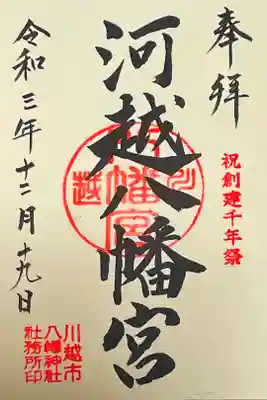 奉拝
祝創建千年祭
河越八幡宮
令和三年十二月十九日
川越市
八幡神社
社務所印